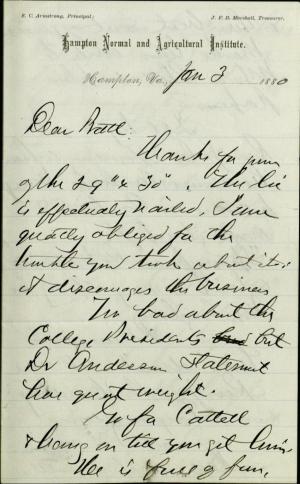 S. C. Armstrong, Principal. J. F. B. Marshall, Treasurer.
Hampton Normal and Agricultural Institute.
Hampton, Va., Jan 3 1880
Dear Pratt:
Thanks for yours
of the 29" & 30". The lie
is effectually nailed. I am
greatly obliged for the
trouble you took about it:
it discourages the business
Too bad about the
College Presidents but
Dr Anderson Statement
has great weight.
Go for Cattell
& hang on till you get him.
He is full of fun,